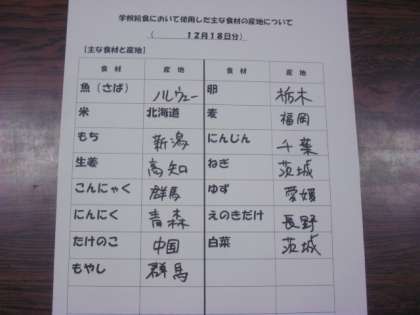 学校給食において使用した主な食材の産地について
( 12月18日分)
【主な食材と産地】
食材 産地 食材 産地
魚（さば） ノルウェー 卵 栃木
米 北海道 麦 福岡
もち 新潟 にんじん 千葉
生姜 高知 ねぎ 茨城
こんにゃく 群馬 ゆず 愛媛
にんにく 青森 えのきだけ 長野
たけのこ 中国 白菜 茨城
もやし 群馬